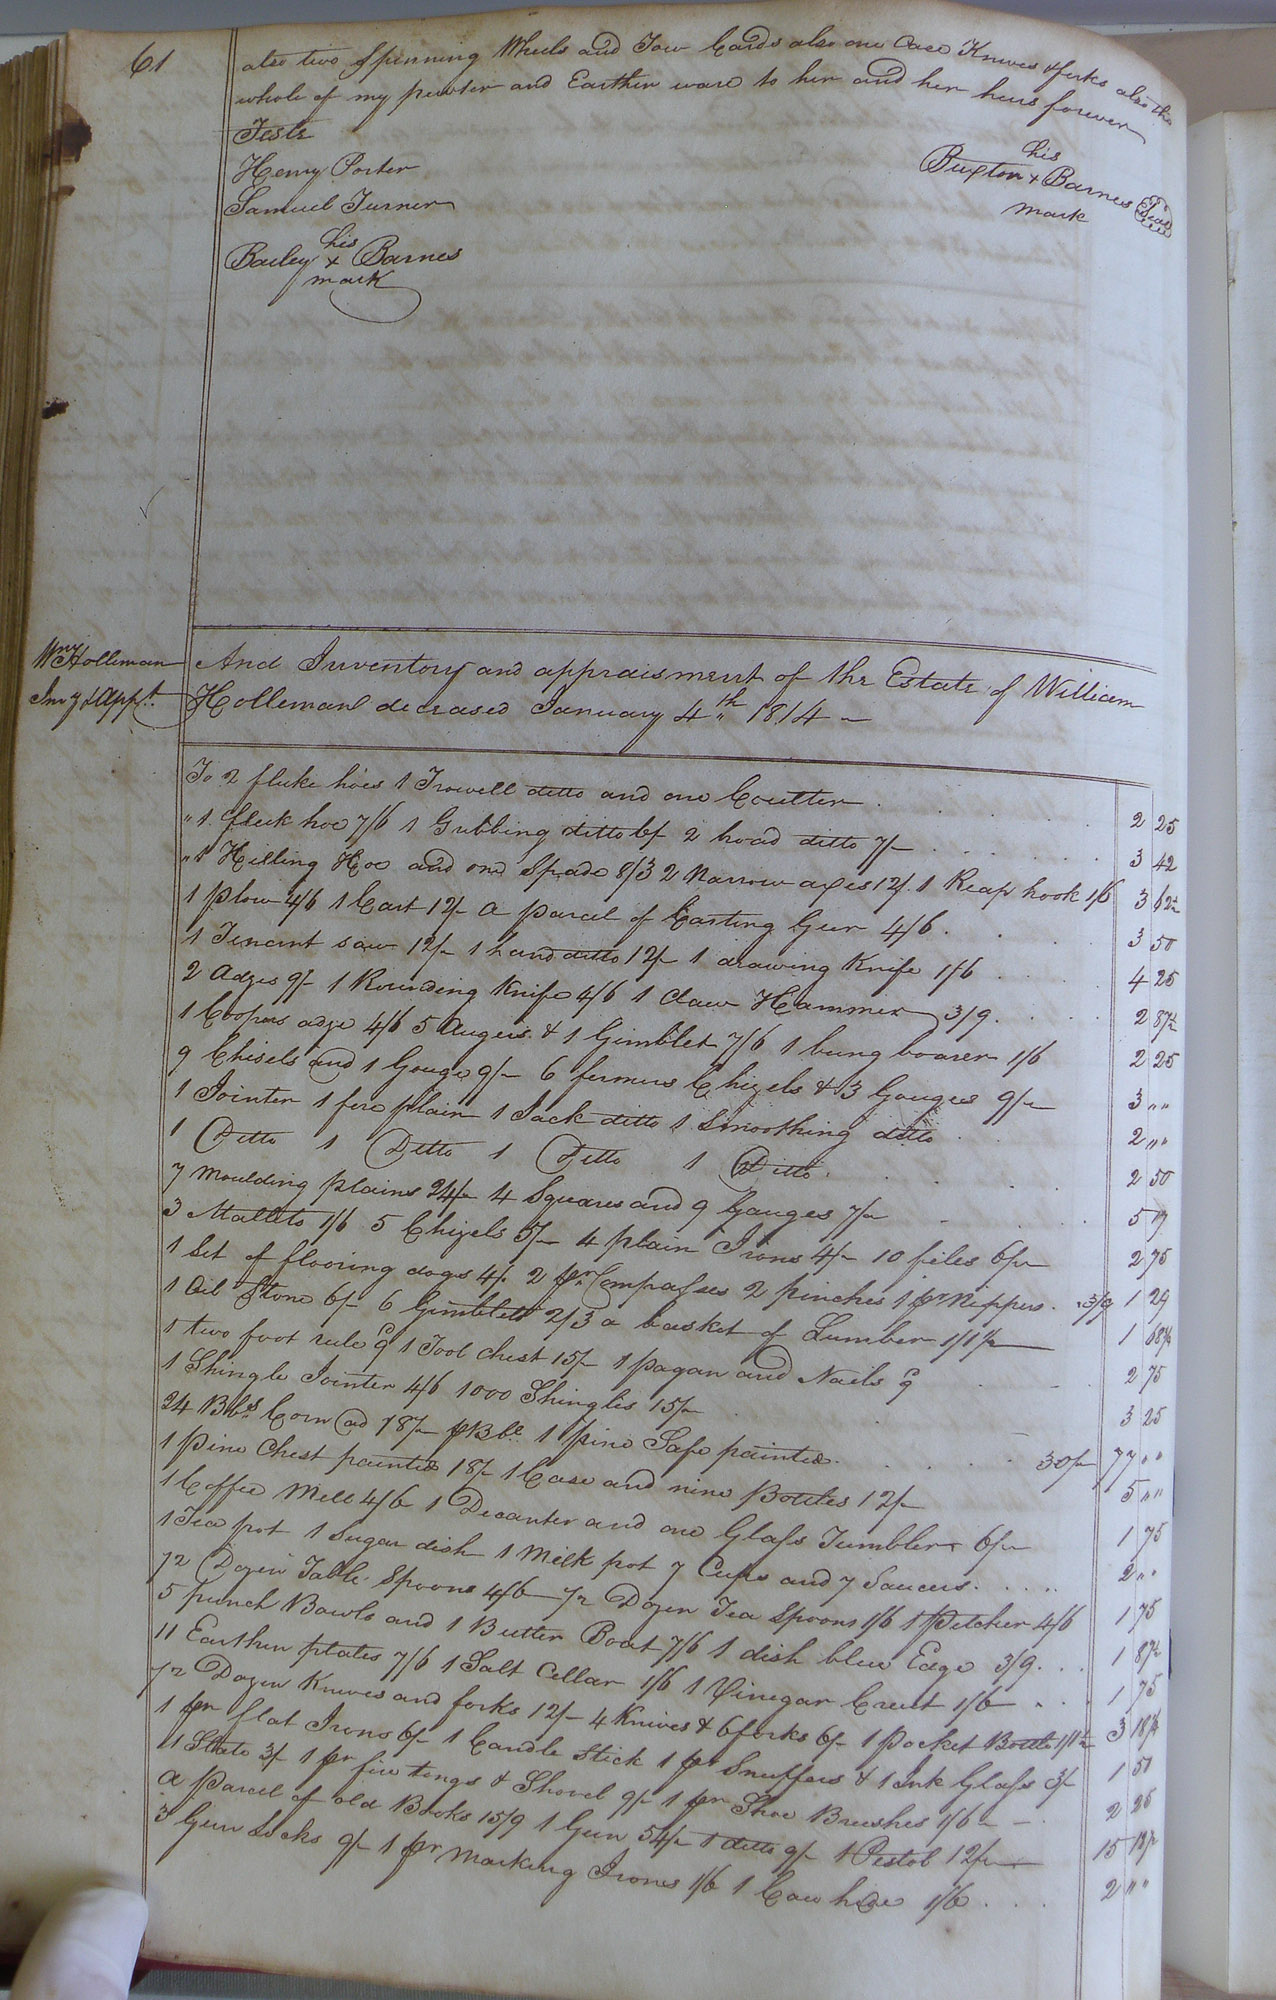 61
also two Spinning Wheels and Tow Cards also one Case Knives & forks also the
whole of my pewter and Earthen ware to her and her heirs forever
Teste
Henry Porter
Samuel Turner
his
Bailey x Barnes
mark
his
Buxton x Barnes Seal
mark
Wm Holleman
Invy & Appt.
And Inventory and appraisment of the Estate of William
Holleman deceased January 4th 1814
To 2 fluke hoes 1 Trowell ditto and one Coulter 2 25
" 1 fluk hoe 7/6 1 Grubbing ditto 6/ 2 hoad ditto 7/- 3 42
" 1 Hilling Hoe and one Spade 8/3 2 Narrow axes 12/. 1 Reap hook 1/6 3 62½
1 Plow 4/6 1 Cart 12/- a parcel of Carting Geer 4/6 3 50
1 Tenent saw 12/- 1 hand ditto 12/- 1 drawing Knife 1/6 4 25
2 Adzes 9/- 1 Rounding Knife 4/6 1 Claw Hammer 3/9 2 87½
1 Coopers adze 4/6 5 Augers & 1 Gimblet 7/6 1 bung boarer 1/6 2 25
9 Chisels and 1 Gouge 9/- 6 firmers Chizels & 3 Gouges 9/- 3 ""
1 Jointer 1 fore plain 1 Jack ditto 1 Smoothing ditto 2 ""
1 Ditto 1 Ditto 1 Ditto 1 Ditto 2 50
7 Moulding plains 24/- 4 Squares and 9 Gauges 7/- 5 17
3 Mallets 1/6 5 Chizels 5/- 4 plain Irons 4/- 10 files 6/- 2 75
1 Set of flooring dogs 4/. 2 pr Compasses 2 pinches 1 pr Nippers 3/9 1 29
1 Oil Stone 6/- 6 Gimblets 2/3 a basket of Lumber 1/1½ 1 68¾
1 two foot rule & 1 Tool Chest 15/- 1 pagan and Nails 2 75
1 Shingle Jointer 4/6 1000 Shingles 15/- 3 25
24 Bbls Corn ad 18/- pBbl 1 pine Safe painted 30/- 77 ""
1 Pine Chest painted 18/- 1 Case and nine Bottles 12/- 5 ""
1 Coffee Mill 4/6 1 Decanter and one Glass Tumbler 6/- 1 75
1 Tea pot 1 Sugar dish 1 Milk pot 7 Cups and 7 Saucers 2 ""
½ Dozen Table Spoons 4/6 ½ Dozen Tea Spoons 1/6 1 Pitcher 4/6 1 75
5 punch Bowls and 1 Butter Boat 7/6 1 dish blue Edge 3/9 1 87½
11 Earthen plates 7/6 1 Salt Cellar 1/6 1 Vinegar Cruet 1/6 1 75
½ Dozen Knives and forks 12/- 4 Knives & 6 forks 6/- 1 Pocket Bottle 1/1½ 3 18¾
1 pr flat Irons 6/- 1 Candle Stick 1 pr Snuffers & 1 Ink Glass 3/- 1 50
1 Slate 3/ 1 pr fire tongs & Shovel 9/- 1 pr Shoe Brushes 1/6 2 25
a parcel of old Books 15/9 1 Gun 54/- 1 ditto 9/- 1 Pistol 12/- 15 12½
3 Gun Locks 9/- 1 pr Marking Irons 1/6 1 Cow hide 1/6 2 ""